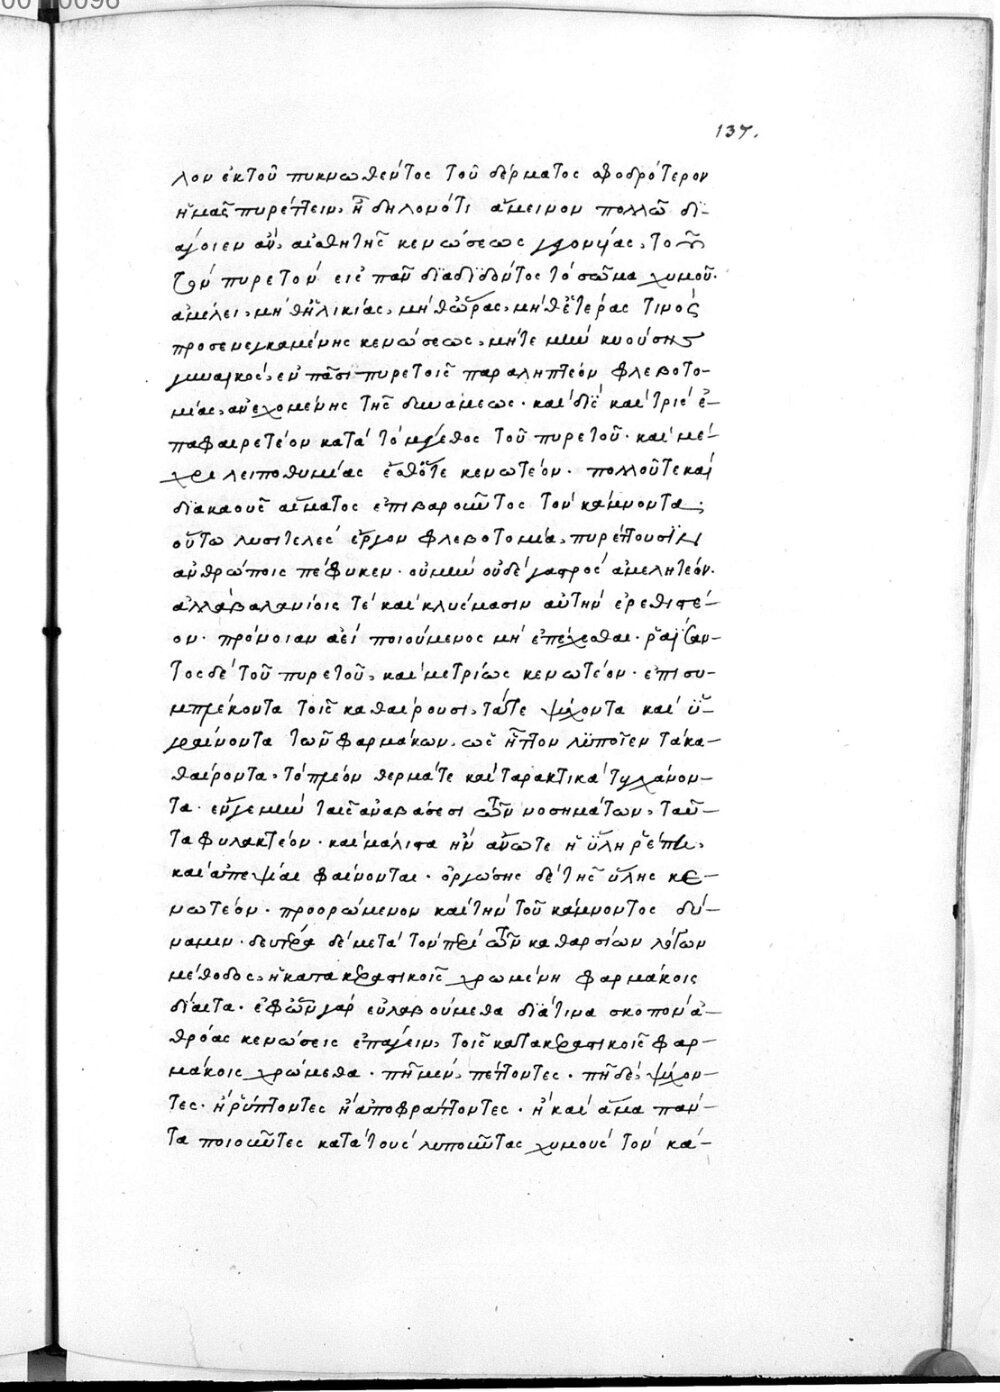 137.
λον ἐκ τοῦ πυκνωθέντος τοῦ δέρματος σφοδρότερον
ἡμᾶς πυρέττειν, ἢ δηλονότι ἄμεινον πολλῶ δι-
άγοιεν ἂν, αἰσθητῆς κενώσεως γεγονυίας, τοῦ
τὸν πυρετὸν εἰς πᾶν διαδιδόντος τὸ σῶμα χυμοῦ.
ἀμέλει, μήθ' ἡλικίας, μήθ' ὥρας, μήθ' ἑτέρας τινὸς
προσενεγκαμένης κενώσεως, μήτε μὴν κυούσης
γυναικὸς, ἐν πᾶσι πυρετοῖς παραληπτέον φλεβοτο-
μίας, ἀνεχομένης τῆς δυνάμεως. καὶ δὶς καὶ τρὶς ἐ-
παφαιρετέον κατὰ τὸ μέγεθος τοῦ πυρετοῦ. καὶ μέ-
χρι λειποθυμίας ἔσθ' ὅτε κενωτέον. πολλοῦ τε καὶ
διακαοῦς αἵματος ἐπιβαροῦντος τὸν κάμνοντα,
οὕτω λυσιτελὲς ἔργον φλεβοτομία, πυρέττουσιν
ἀνθρώποις πέφυκεν. οὐ μὴν οὐδὲ γαστρὸς ἀμελητέον.
ἀλλὰ βαλανίοις τὲ καὶ κλύσμασιν αὐτὴν ἐρεθιστέ-
ον. πρόνοιαν ἀεὶ ποιούμενος μὴ ἐπέχεσθαι. ῥαΐζον-
τος δὲ τοῦ πυρετοῦ, καὶ μετρίως κενωτέον. ἐπισυ-
μπλέκοντα τοῖς καθαίρουσι, τά τε ψύχοντα καὶ ὑ-
γραίνοντα τῶν φαρμάκων, ὡς ἧττον λυποῖεν τὰ κα-
θαίροντα, τὸ πλέον θερμά τε καὶ ταρακτικὰ τυγχάνον-
τα. ἔν γε μὴν ταῖς ἀναβάσεσι τῶν νοσημάτων, ταῦ-
τα φυλακτέον. καὶ μάλιστα ἢν ἄνω τε ἡ ὕλη ῥέπη,
καὶ ἀπεψίαι φαίνονται. ὀργώσης δὲ τῆς ὕλης κε-
νωτέον. προορώμενον καὶ τὴν τοῦ κάμνοντος δύ-
ναμιν. δευτέρα δὲ μετὰ τὸν περὶ τῶν καθαρσίων λόγων
μέθοδος, ἡ κατακεραστικοῖς χρωμένη φαρμάκοις
δίαιτα. ἐφ' ὧν γὰρ εὐλαβούμεθα διά τινα σκοπὸν ἀ-
θρόας κενώσεις ἐπάγειν, τοῖς κατακεραστικοῖς φαρ-
μάκοις χρώμεθα. πῆ μὲν, πέττοντες. πῆ δὲ, ψύχον-
τες. ἢ ῥύπτοντες ἢ ἀποφράττοντες. ἢ καὶ ἅμα πάν-
τα ποιοῦντες κατὰ τοὺς λυποῦντας χυμοὺς τὸν κά-